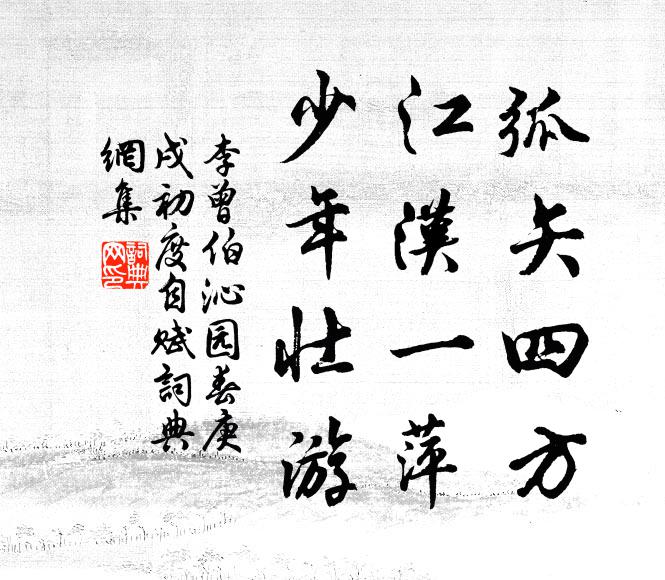 弧矢四方
江漢一萍
少年壮游
李曾伯沁园春庚
戍初度自赋詞典
網集
詞典
网印